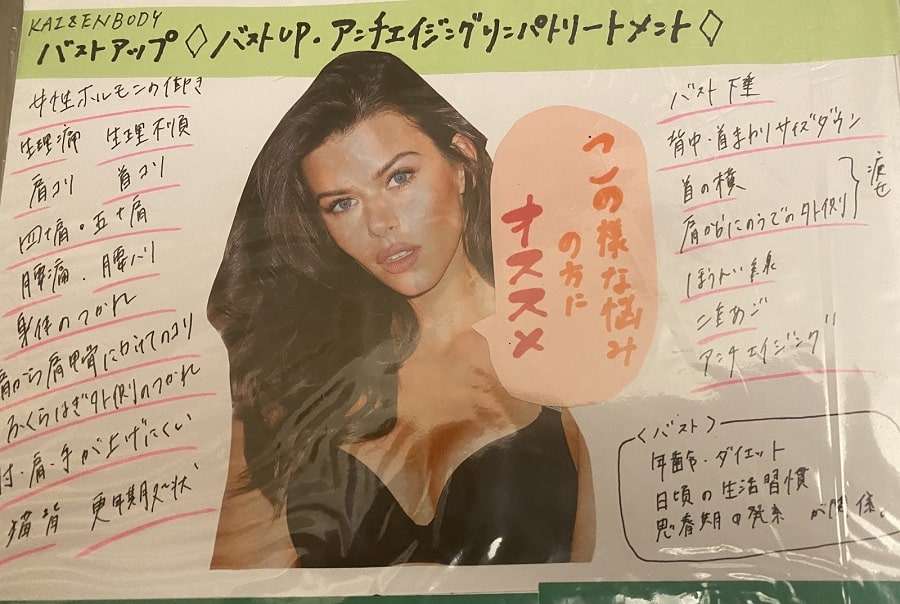 KAIZENBODY
バストアップ◇バストUP・アンチエイジングリンパトリートメント◇
女性ホルモンの働き
生理痛 生理不順
肩コリ 首コリ
四十肩・五十肩
腰痛・腰ハリ
身体のつかれ
肩から肩甲骨にかけてのコリ
ふくらはぎ外側のつかれ
肘・肩・手が上げにくい
猫背 更年期症状
この様な悩み
の方に
オススメ
バスト下垂
背中・首まわりサイズダウン
首の横
肩からにのうでの外側
痩せ
ほうれい線
二重あご
アンチエイジング
〈バスト〉
年齢・ダイエット
日頃の生活習慣
思春期の発系 が関係。